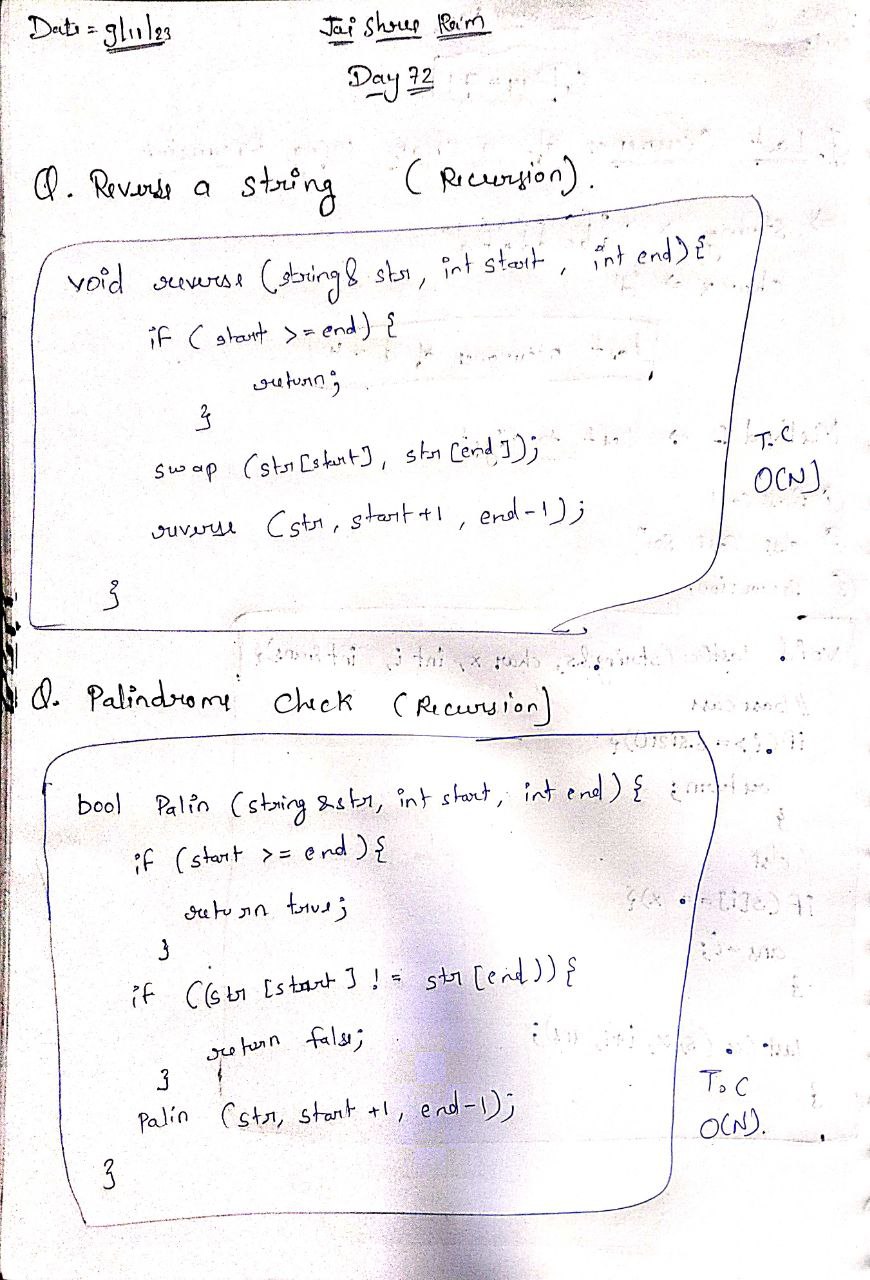 Date = 9/11/23
Jai Shree Ram
Day 72
Q. Reverse a string (Recursion).
void reverse (string& str, int start, int end) {
if (start >= end) {
return;
}
swap (str[start], str[end]);
reverse (str, start+1, end-1);
}
T.C
O(N).
Q. Palindrome Check (Recursion)
bool Palin (string &str, int start, int end) {
if (start >= end) {
return true;
}
if ((str [start] != str [end)) {
return false;
}
Palin (str, start +1, end-1);
}
T.C
O(N).